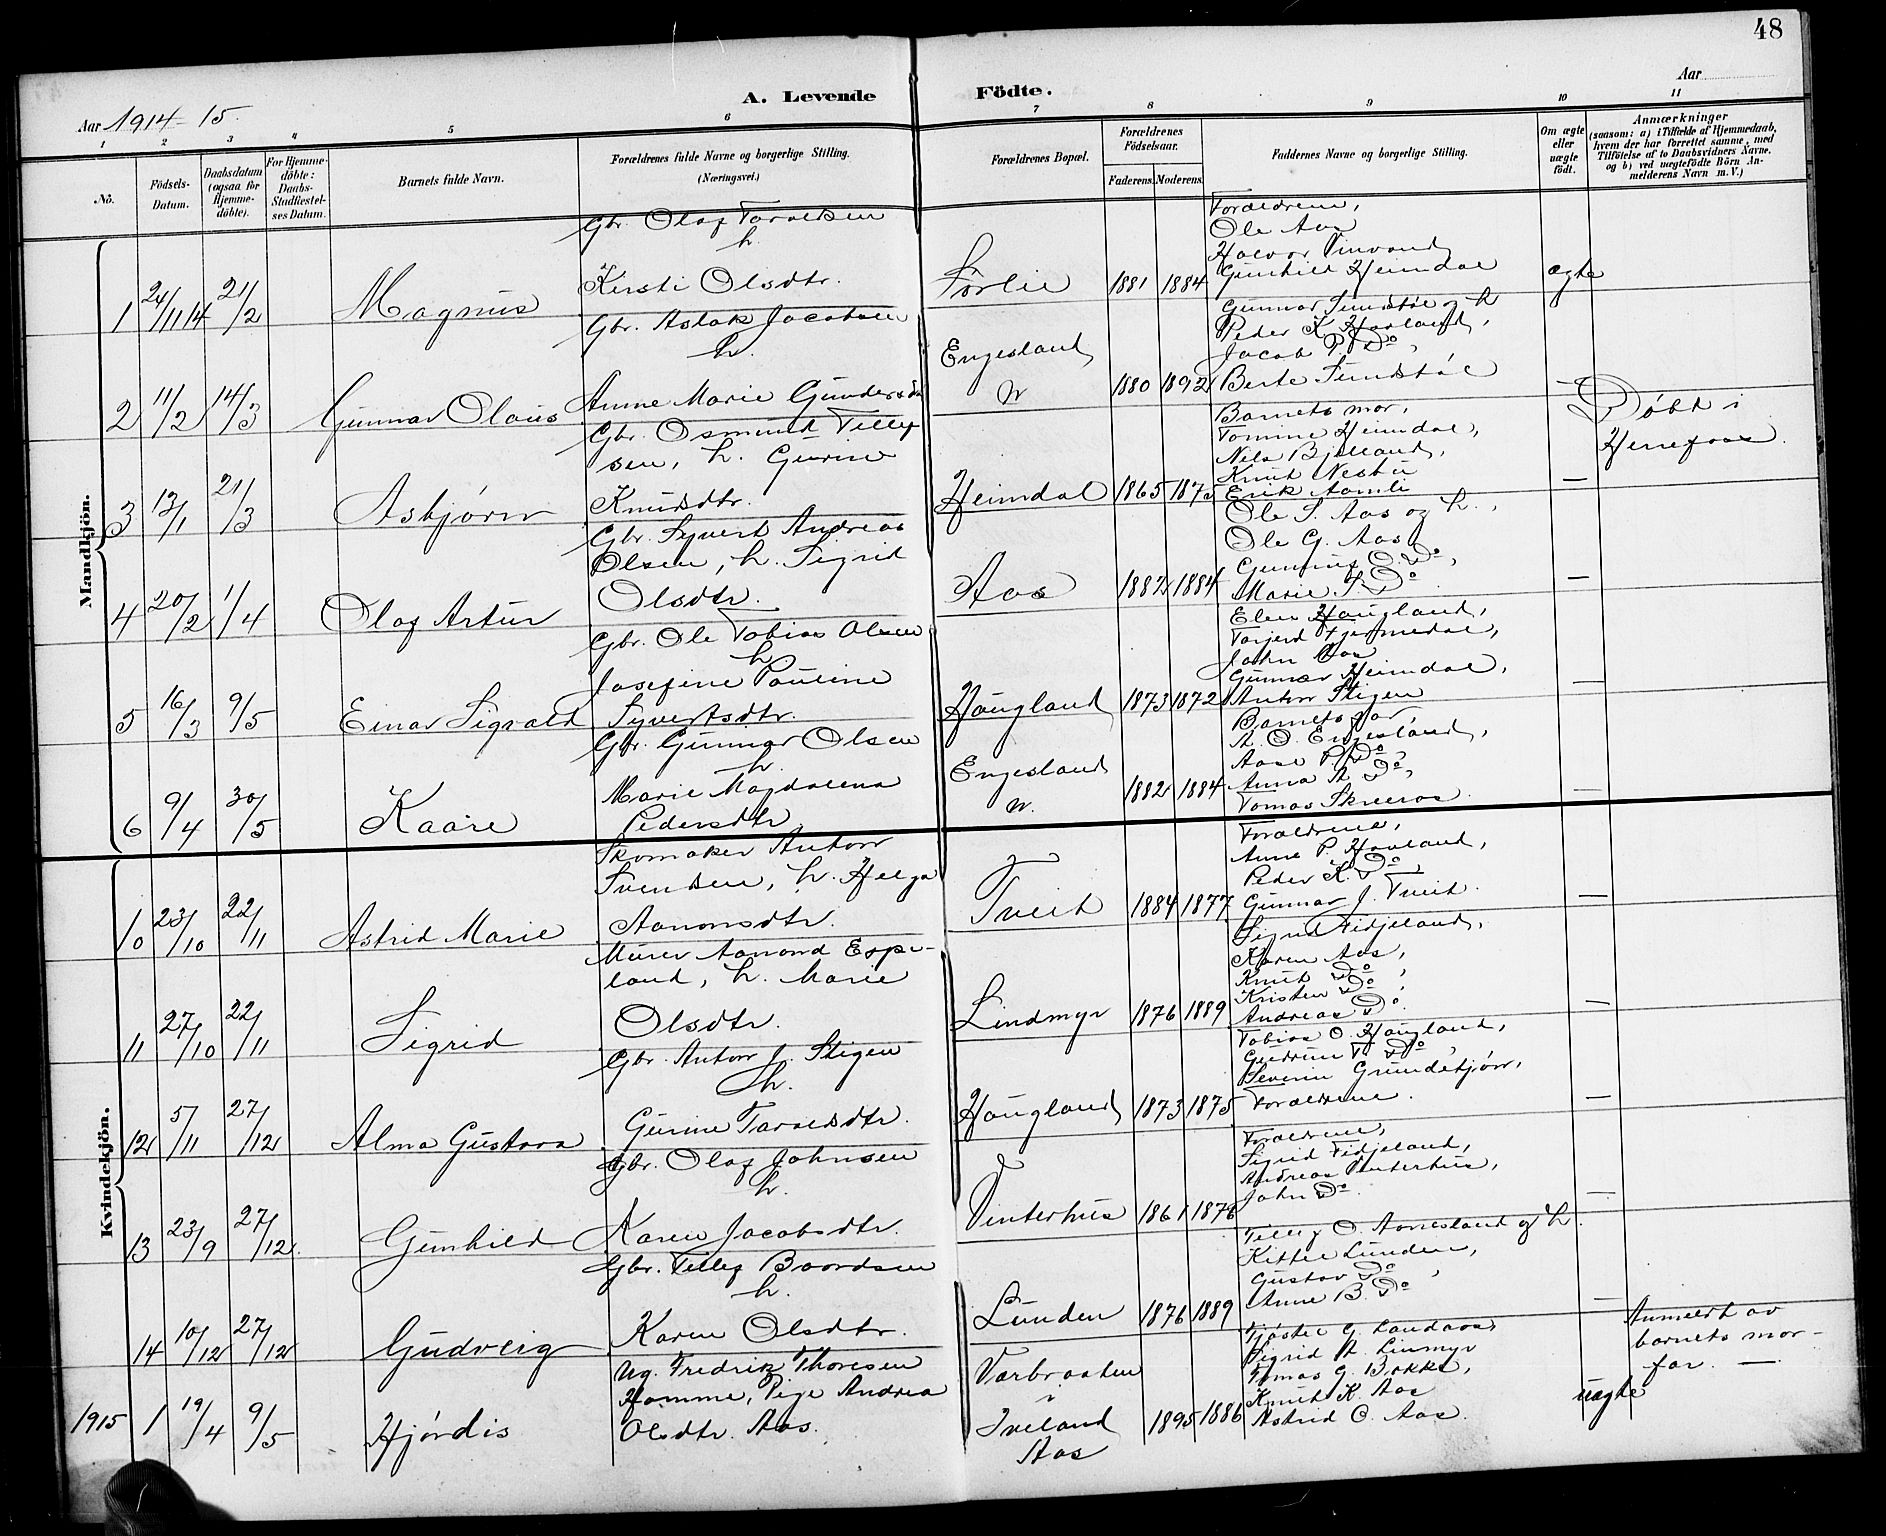 48
Aar 1914-15.
A. Levende
Födte.
Aar
1 2 3 4 5 6 7 8 9 10 11
No.
Födsels-Datum.
Daabsdatum (ogsaa for Hjemme-döbte).
For Hjemme-döbte: Daabs-Stadfæstel-ses Datum.
Barnets fulde Navn.
Forældrenes fulde Navne og borgerlige Stilling. (Næringsvei.)
Forældrenes Bopæl.
Forældrenes Födselsaar.
Faderens. Moderens.
Faddernes Navne og borgerlige Stilling.
Om ægte eller uægte födt.
Anmærkninger (saasom: a) i Tilfælde af Hjemmedaab, hvem der har forrettet samme, med Tilföielse af to Daabsvidners Navne, og b) ved uægtefödte Börn Anmelderens Navn m. V.)
Mandkjön.
1 24/11 14 21/2 Magnus
Gbr. Olaf Taraldsen
h.
Kirsti Olsdtr.
Förlie 1881 1884
Forældrene,
Ole Aas
Halvor
Gunhild Heimdal
ægte
2 11/2 14/3 Gunnar Olaus
Gbr. Aslak Jacobsen
h.
Anne Marie Gundersdtr
Engesland
n. 1880 1892
Gunnar Sundstøl og h
Peder K. Hovland,
Jacob P. Do,
Berte Sundstøl
—
Døbt i
Herefoss.
3 13/1 21/3 Asbjørn
Gbr. Osmund Tellef
sen, h. Gurine
Knudsdtr.
Heimdal 1865 1875
Barnets mor,
Tomine Heimdal,
Nils Bjelland,
Knut Nestu
Erik Aamli
—
4 20/2 1/4 Olaf Artur
Gbr. Syvert Andreas
Olsen, h. Sigrid
Olsdtr.
Aas 1882 1884
Ole S. Aas og h.,
Ole G. Aas
Gunnuf O. Do,
Marie S. Do
—
5 16/3 9/5 Einar Sigvald
Gbr. Ole Tobias Olsen
h
Josefine Pauline
Syvertsdtr.
Haugland 1873 1872
Elen Haugland,
Tarjerd Fjermedal,
John Aas
Gunnar Heimdal,
Anton Stigen
—
6 9/4 30/5 Kaare
Gbr. Gunnar Olsen
h.
Marie Magdalena
Pedersdtr
Engesland
n. 1882 1884
Barnets far,
A. O. Engesland,
Aase P. Do,
Anna A. Do,
Tomas Skreeros.
—
Kvindekjön.
10 23/10 22/11 Astrid Marie
Skomaker Anton
Svendsen, h. Helga
Aanonsdtr.
Tveit 1884 1877
Forældrene,
Anne P. Hovland,
Peder K. Do,
Gunnar J. Tveit.
—
11 27/10 22/11 Sigrid
Murer Aamond Espe-
land, h. Marie
Olsdtr.
Lindmyr 1876 1889
Sigrid Fidjeland,
Karen Aas,
Knut Do,
Kristen Do,
Andreas Do.
—
12 5/11 27/12 Alma Gustava
Gbr. Anton J. Stigen
h.
Gurine Taraldsdtr.
Haugland 1873 1875
Tobias O. Haugland,
Gudrun T. Do,
Severin Grundetjøn,
Forældrene.
—
13 23/9 27/12 Gunhild
Gbr. Olaf Johnsen
h.
Karen Jacobsdtr.
Vinterhus 1861 1876
Forældrene,
Sigrid Fidjeland,
Andreas Vinterhus,
John Do.
—
14 10/12 27/12 Gudveig
Gbr. Tellef Baardsen
h.
Karen Olsdtr.
Lunden 1876 1889
Tellef O. Aanesland og h.
Kittel Lunden,
Gustav Do,
Anne B. Do
—
1915 1 19/4 9/5 Hjørdis
Ug. Fredrik Thoresen
Homme, Pige Andrea
Olsdtr. Aas.
Varbraaten
i
Iveland
Aas
1895 1886
Tjøstel G. Landaas,
Sigrid A. Linmyr
Tomas G. Bakke,
Knut K. Aas
Astrid O. Aas.
uægte
Anmeldt av
barnets mor-
far. —